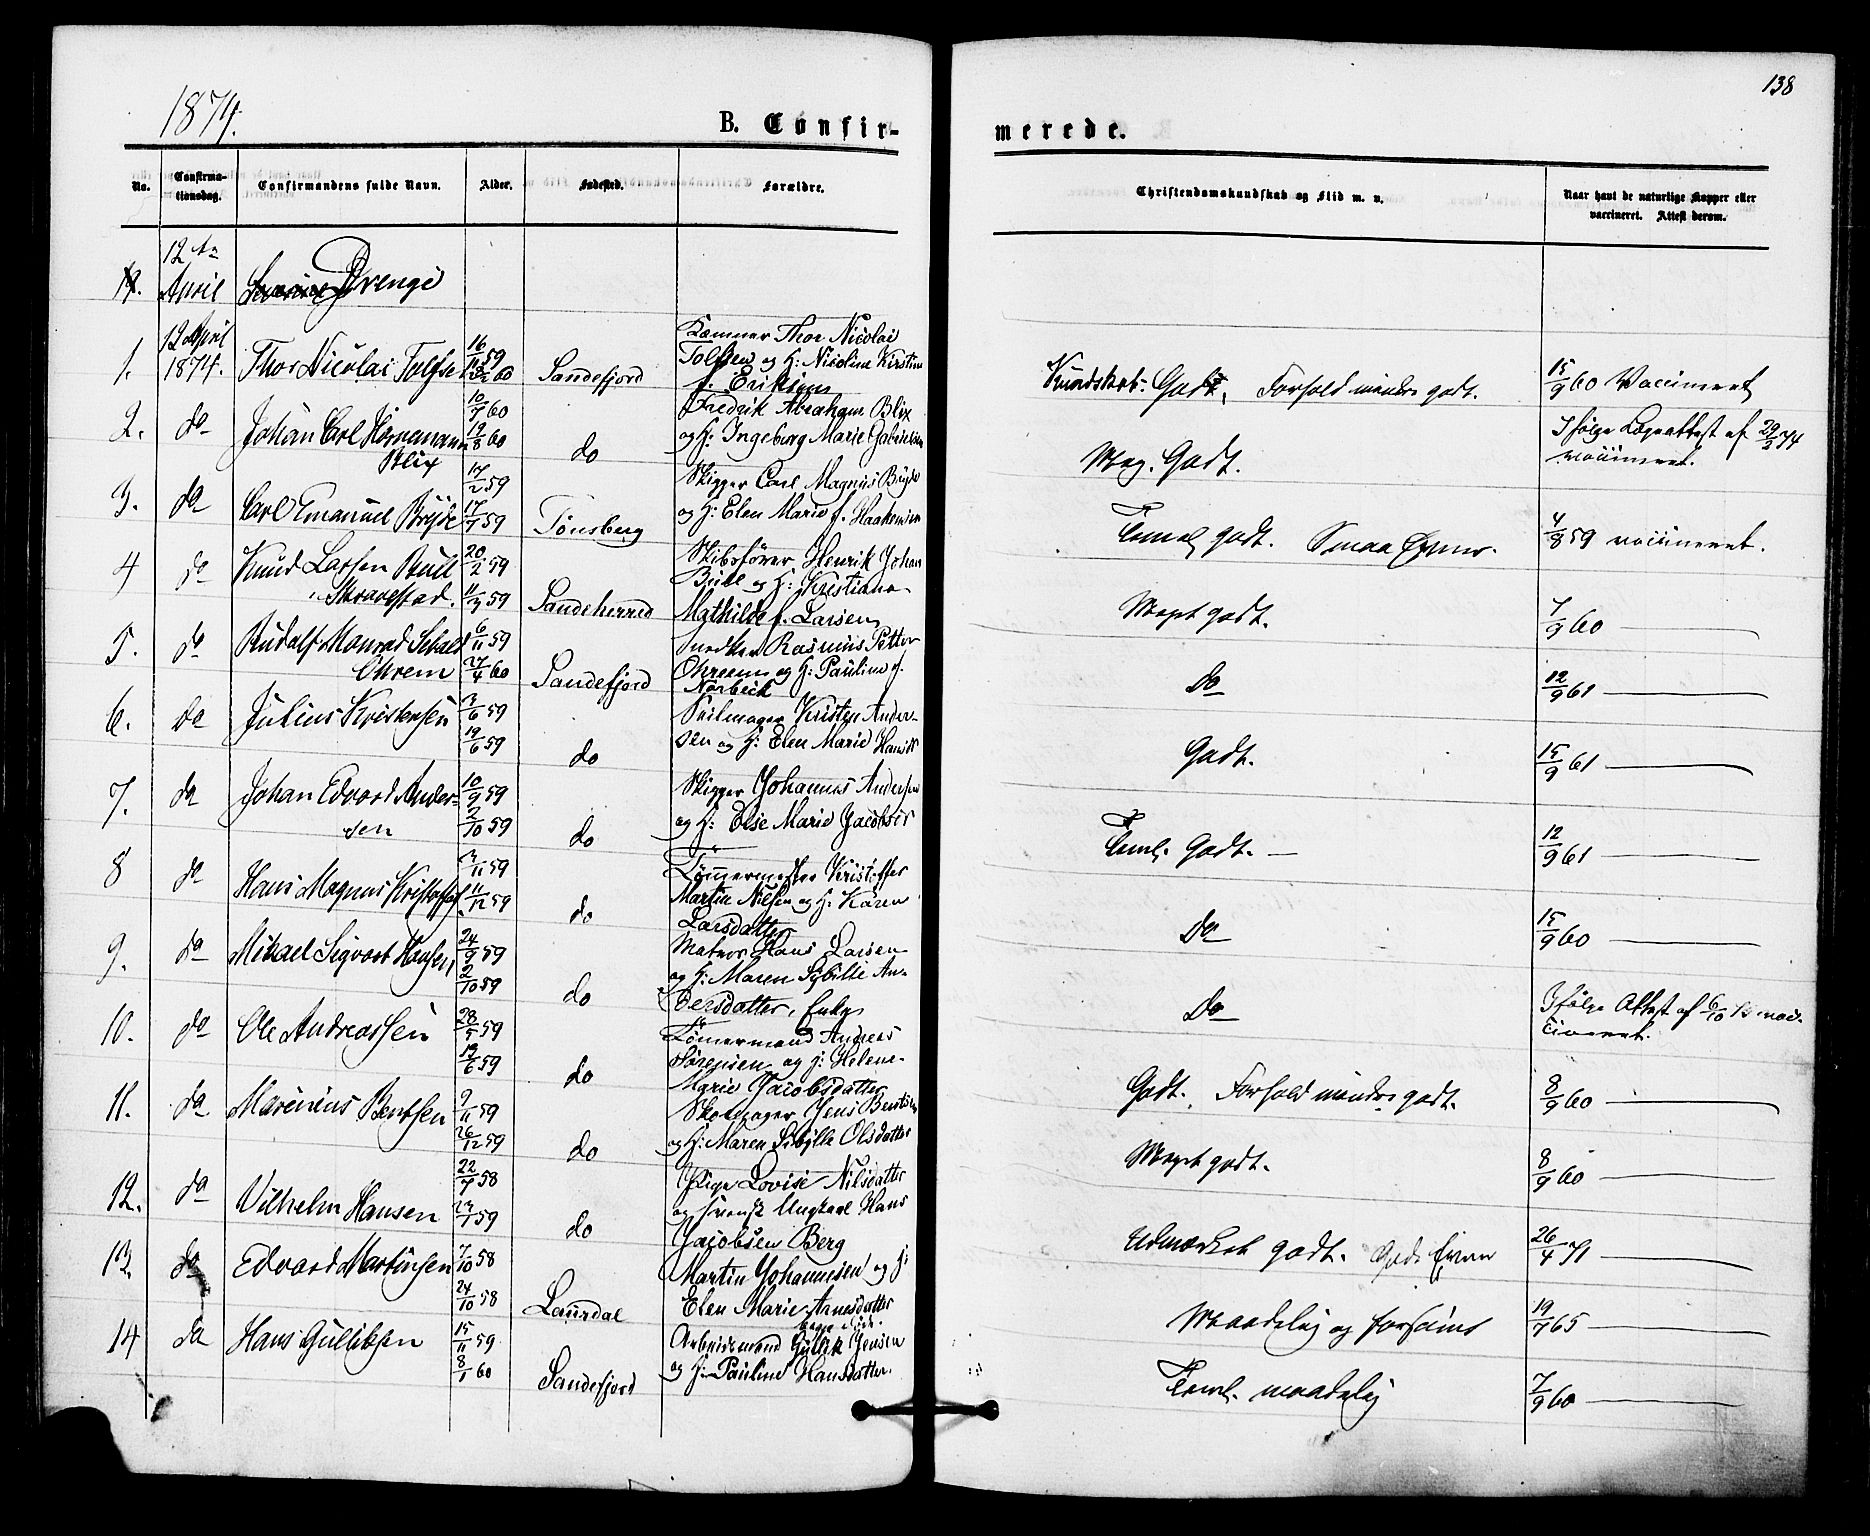 138
1874.
B. Confir-
merede.
No.
Confirma-
tionsdag.
Confirmandens fulde Navn.
Alder.
Fødested.
Forældre.
Christendomskundskab og Flid m. v.
Naar havt de naturlige Kopper eller
vaccineret. Attest derom.
12te
April
Drenge
1. 12 April 1874. Thor Nicolai Tolfsen 16/11 59 60 Sandefjord
Kæmner Thor Nicolai
Tolfsen og H: Nicoline Kirstine
f. Eriksen
Kundskab: Godt, Forhold mindre godt. 15/9 60 Vaccineret
2. do Johan Carl Hornemann
Blix
10/7 60
19/8 60
do
Fredrik Abraham Blix
og H: Ingeborg Marie Gabrielsen
Meg. Godt.
Ifølge Lægeattest af 29/3 74
vaccineret.
3. do Carl Emanuel Bryde
17/2 59
17/4 59
Tønsberg
Skipper Carl Magnus Bryde
og H: Elen Marie f. Haakensen
Teml. godt. Smaa Evner.
4/8 59 vaccineret.
4 do Knud Larsen Bull
Skravestad.
20/2 59
59
Sandeherred
Skibsfører Henrik Johan
Bull og H: Kristiane
Mathilde f. Larsen
Meget godt.
7/9 60
5. do Rudolf Monrad Sebald
Ohrem
6/11 59
27/4 60
Sandefjord
Snedker Rasmus Petter
Ohreem og H: Pauline f.
Norbeck
Do
12/9 61
6. do Julius Kristensen
3/6 59
19/6 59
do
Seilmager Kristen Ander-
sen og H: Elen Marie
Godt.
15/9 61
7. do Johan Edvard Ander-
sen
10/9 59
2/10 59
do
Skipper Johannes Andersen
og H: Else Marie Jacobsen
Teml. Godt. —
12/9 61
8 do Hans Magnus Kristoffers.
3/11 59
11/12 59
do
Tømmermester Kristoffer
Martin Nilsen og H: Karen
Larsdatter
Do
15/9 60
9. do Mikael Sigvart Hansen
24/9 59
2/10 59
do
Matros Hans Larsen
og H: Maren Sibille An-
dersdatter, Enke
Do
Ifølge Attest af 6/10 vac-
cineret.
10. do Ole Andreassen
28/5 59
19/6 59
do
Tømmermand Andreas
Sørensen og H: Helene
Marie Jacobsdatter
Godt. Forhold mindre godt.
8/9 60
11. do Marinius Bentsen
9/11 59
26/12 59
do
Skomager Jens Bentsen
og H: Maren Sibylle Olsdatter
Meget godt.
8/9 60
12. do Vilhelm Hansen
22/7 58
59
do
Pige Lovise Nilsdatter
og svensk Ungkarl Hans
Jacobsen Berg
Udmærket godt. Gode Evner
26/4 71
13. do Edvard Martinsen
7/10 58
24/10 58
Laurdal
Martin Johannesen og H:
Elen Marie Arnesdatter
begge døde.
Maadelig og forsømt
19/7 65
14 do Hans Gulliksen
15/11 59
8/1 60
Sandefjord
Arbeidsmand Gullik Jensen
og H: Pauline Hansdatter.
Teml. maadelig
7/9 60